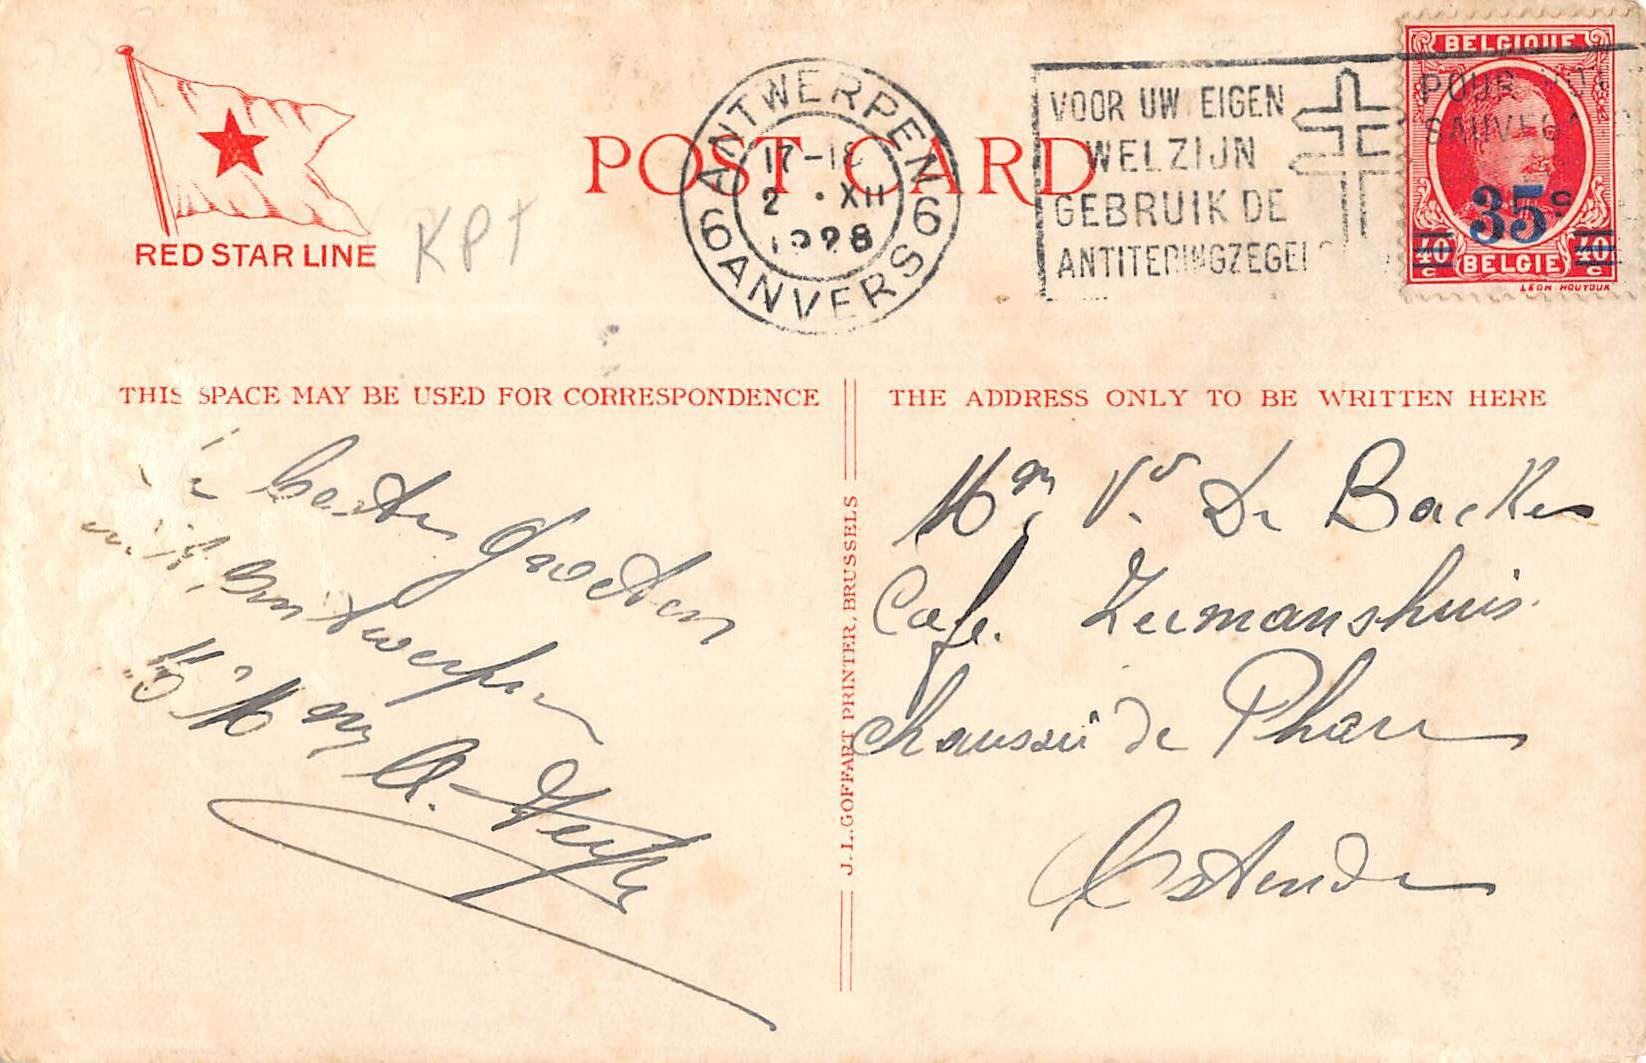 RED STAR LINE
KPt
POST CARD
ANTWERPEN 6
17-18
2 • XII
1928
6 ANVERS
VOOR UW EIGEN
WELZIJN
GEBRUIK DE
ANTITERINGZEGEL
POUR
SAUVEG
BELGIQUE
35c
40c 40c
BELGIË
LEON HOUYOUX
THIS SPACE MAY BE USED FOR CORRESPONDENCE
THE ADDRESS ONLY TO BE WRITTEN HERE
J. L. GOFFART PRINTER, BRUSSELS
beste groeten
uit Antwerpen
A.
Mme Ve De Backer
Café. Zeemanshuis.
Chaussée de Phare
Ostende